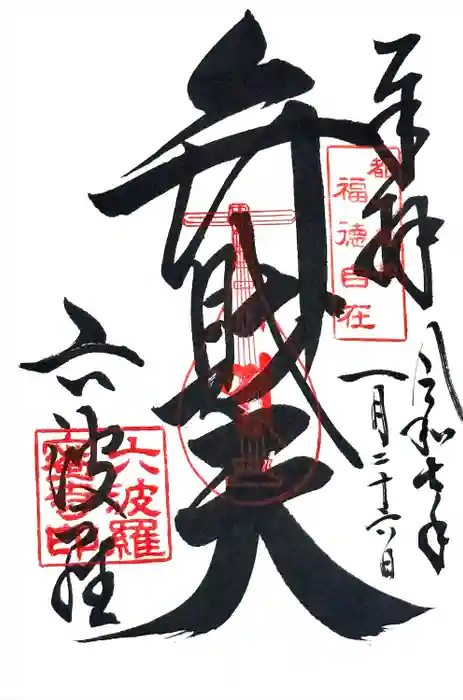 奉拝
令和七年
一月二十六日
福徳自在
弁財天
六波羅
六波羅
蜜寺印